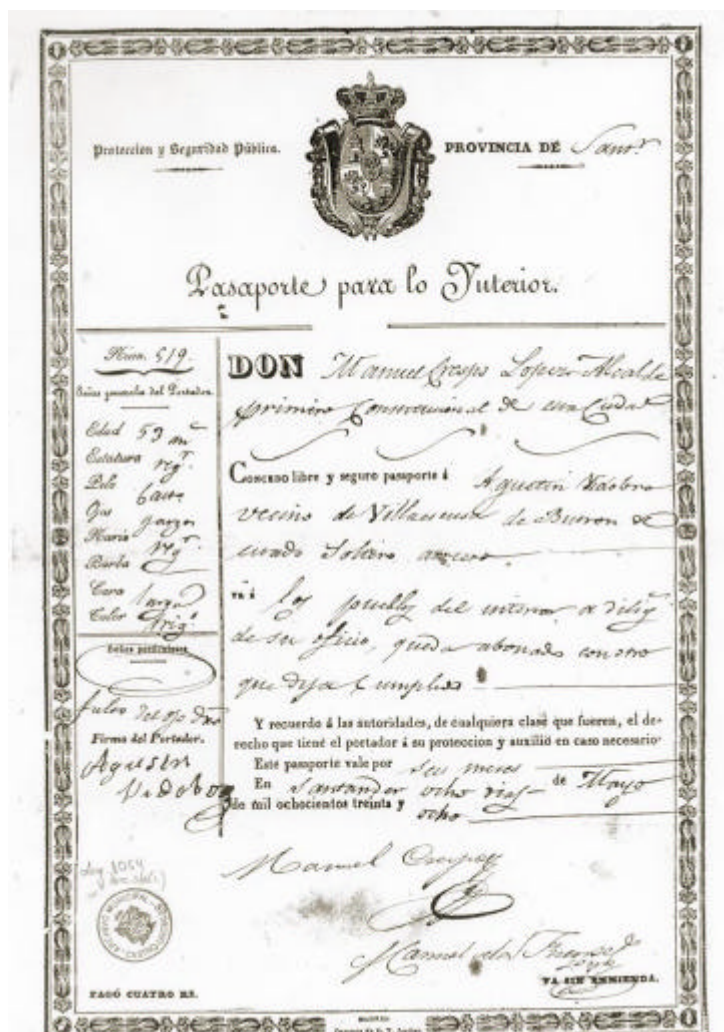 Proteccion y Seguridad Pública.
PROVINCIA DE Sanr.
Pasaporte para lo Interior.
Núm. 519.
Señas generales del Portador.
Edad 53 añ
Estatura regr.
Pelo Caste
Ojos garzos
Nariz regr.
Barba
Cara larga
Color trigo
Señas particulares
falto del ojo dro
Firma del Portador.
Agustin
DON Manuel Crespo Lopez Alcalde
primero Constitucional de esta Ciudad
CONCEDO libre y seguro pasaporte á Agustin
vecino de Villaescusa de Butron de
estado Soltero arriero
va á los pueblos del interior a dilig
de su oficio, queda abonado con otro
que deja Cumplido
Y recuerdo á las autoridades, de cualquiera clase que fueren, el de-
recho que tiene el portador á su proteccion y auxilio en caso necesario.
Este pasaporte vale por seis meses
En Santander ocho dias de Mayo
de mil ochocientos treinta y ocho
Manuel Crespo
Manuel de la
VA SIN ENMIENDA.
PAGÓ CUATRO RS.
MADRID